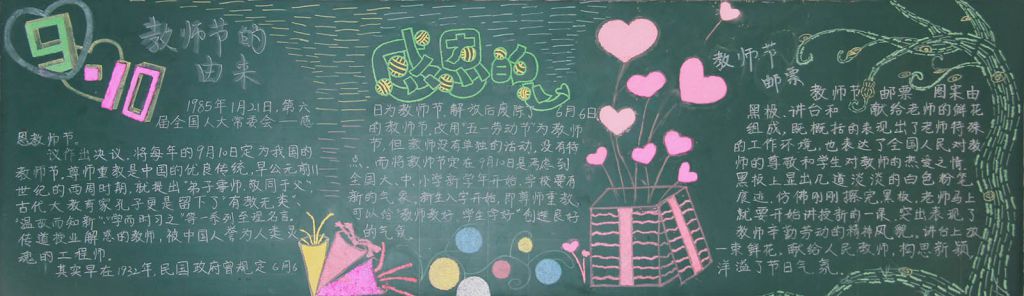 9.10
教师节的
由来
1985年1月21日,第六
届全国人大常委会一
感恩教师节。
议作出决议,将每年的9月10日定为我国的
教师节。尊师重教是中国的优良传统,早公元前11
世纪的西周时期,就提出“弟子事师,敬同于父”
古代大教育家孔子更是留下了“有教无类”、
“温故而知新”“学而时习之”等一系列至理名言。
传道授业解惑的教师,被中国人誉为人类灵
魂的工程师。
其实早在1932年,民国政府曾规定6月6
日为教师节,解放后废除了6月6日
的教师节,改用“五一劳动节”为教师
节,但教师没有单独的活动,没有特
点。而将教师节定在9月10日是考虑到
全国大、中、小学新学年开始,学校要有
新的气象。新生入学开始,即尊师重教,
可以给“教师教好、学生学好”创造良好
的气氛
教师节
邮票
教师节 邮票 图案由
黑板、讲台和 献给老师的鲜花
组成,既概括的表现出了老师特殊
的工作环境,也表达了全国人民对教
师的尊敬和学生对教师的热爱之情。
黑板上显出几道淡淡的白色粉笔
痕迹,仿佛刚刚擦完黑板,老师马上
就要开始讲授新的一课,突出表现了
教师辛勤劳动的精神风貌。讲台上放
一束鲜花,献给人民教师,构思新颖
洋溢了节日气氛。